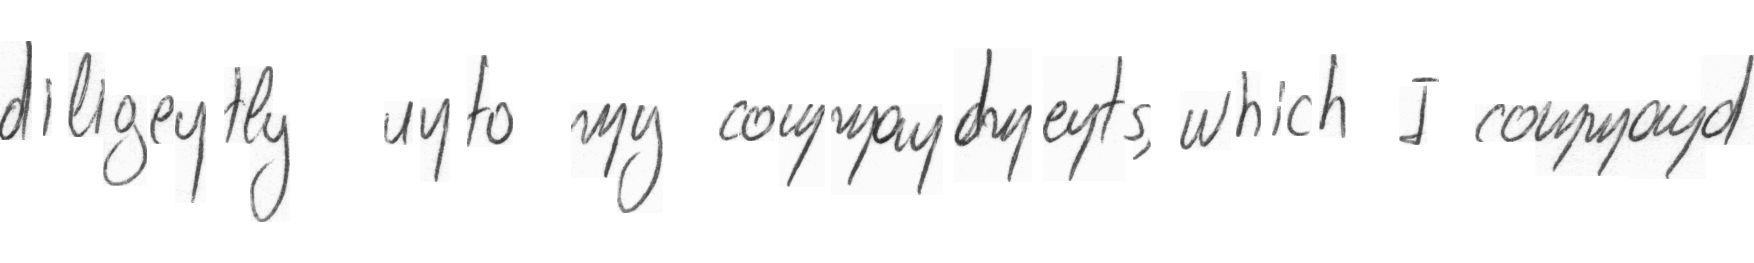 diligently unto my commandments, which I command